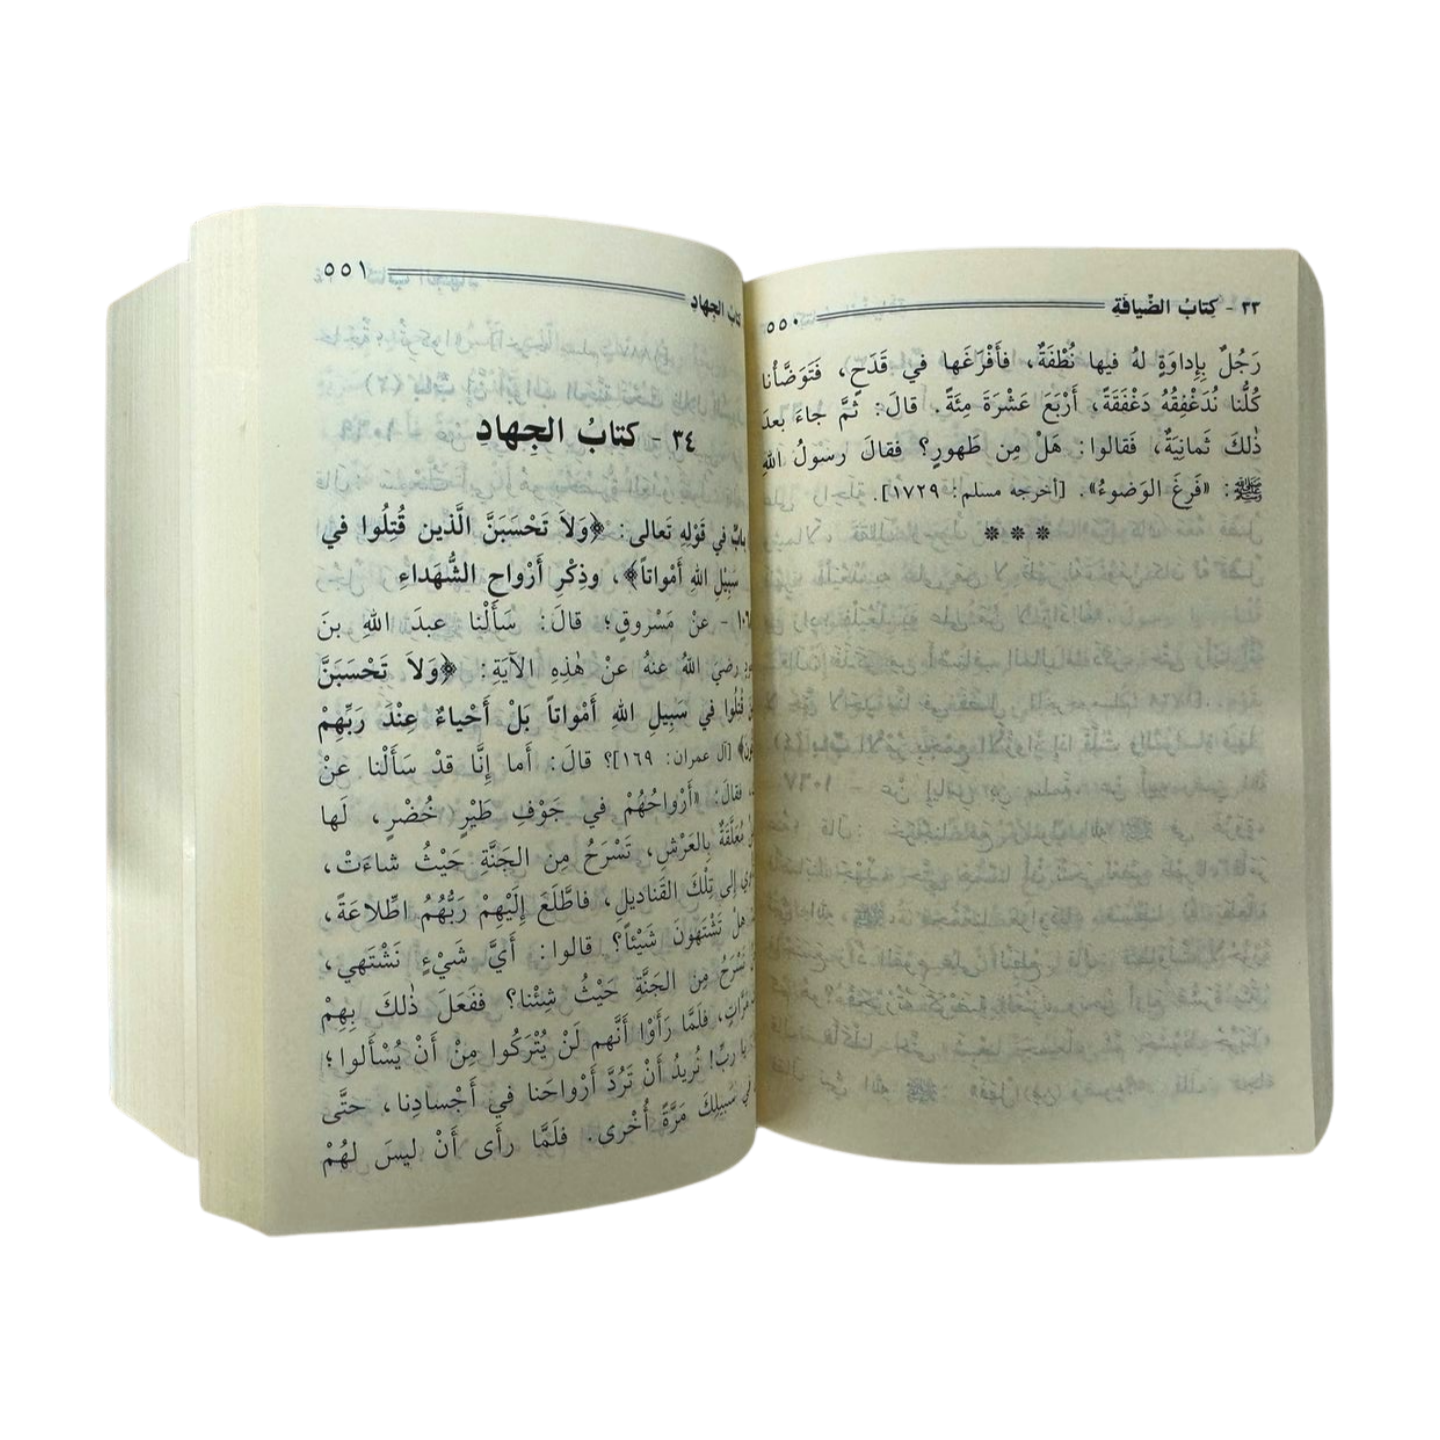 ٣٣ - كِتابُ الضِّيافَةِ
٥٥٠
رَجُلٌ بِإِداوَةٍ لهُ فيها نُطْفَةٌ، فأَفْرَغَها في قَدَحٍ، فَتَوَضَّأْنا
كُلُّنا نُدَغْفِقُهُ دَغْفَقَةً، أَرْبَعَ عَشْرَةَ مِئَةً. قالَ: ثُمَّ جاءَ بعدَ
ذٰلكَ ثَمانِيَةٌ، فَقالوا: هَلْ مِن طَهورٍ؟ فقالَ رسولُ اللهِ
ﷺ: «فَرِغَ الوَضوءُ». [أخرجه مسلم: ١٧٢٩].
* * *
كتابُ الجِهادِ
٥٥١
٣٤ - كتابُ الجِهادِ
بابٌ في قَوْلِهِ تَعالى: ﴿وَلاَ تَحْسَبَنَّ الَّذين قُتِلُوا في
سَبِيْلِ اللهِ أَمْواتاً﴾، وذِكْرِ أَرْواحِ الشُّهَداءِ
- عنْ مَسْروقٍ؛ قالَ: سَأَلْنا عبدَ اللهِ بنَ
رضيَ اللهُ عنهُ عنْ هٰذِهِ الآيَةِ: ﴿وَلاَ تَحْسَبَنَّ
قُتِلُوا في سَبِيلِ اللهِ أَمْواتاً بَلْ أَحْياءٌ عِنْدَ رَبِّهِمْ
[آل عمران: ١٦٩]؟ قالَ: أَما إِنَّا قدْ سَأَلْنا عنْ
فقالَ: «أَرْواحُهُمْ في جَوْفِ طَيْرٍ خُضْرٍ، لَها
مُعَلَّقَةٌ بِالعَرْشِ، تَسْرَحُ مِنَ الجَنَّةِ حَيْثُ شاءَتْ،
إِلى تِلْكَ القَناديلِ، فاطَّلَعَ إِلَيْهِمْ رَبُّهُمُ اطِّلاعَةً،
هلْ تَشْتَهونَ شَيْئاً؟ قالوا: أَيَّ شَيْءٍ نَشْتَهي،
نَسْرَحُ مِنَ الجَنَّةِ حَيْثُ شِئْنا؟ ففَعَلَ ذٰلكَ بِهِمْ
مَرَّاتٍ، فلَمَّا رَأَوْا أَنَّهم لَنْ يُتْرَكُوا مِنْ أَنْ يُسْأَلوا؛
يا ربِّ! نُريدُ أَنْ تَرُدَّ أَرْواحَنا في أَجْسادِنا، حتَّى
في سَبيلِكَ مَرَّةً أُخْرى. فلَمَّا رأَى أَنْ ليسَ لهُمْ